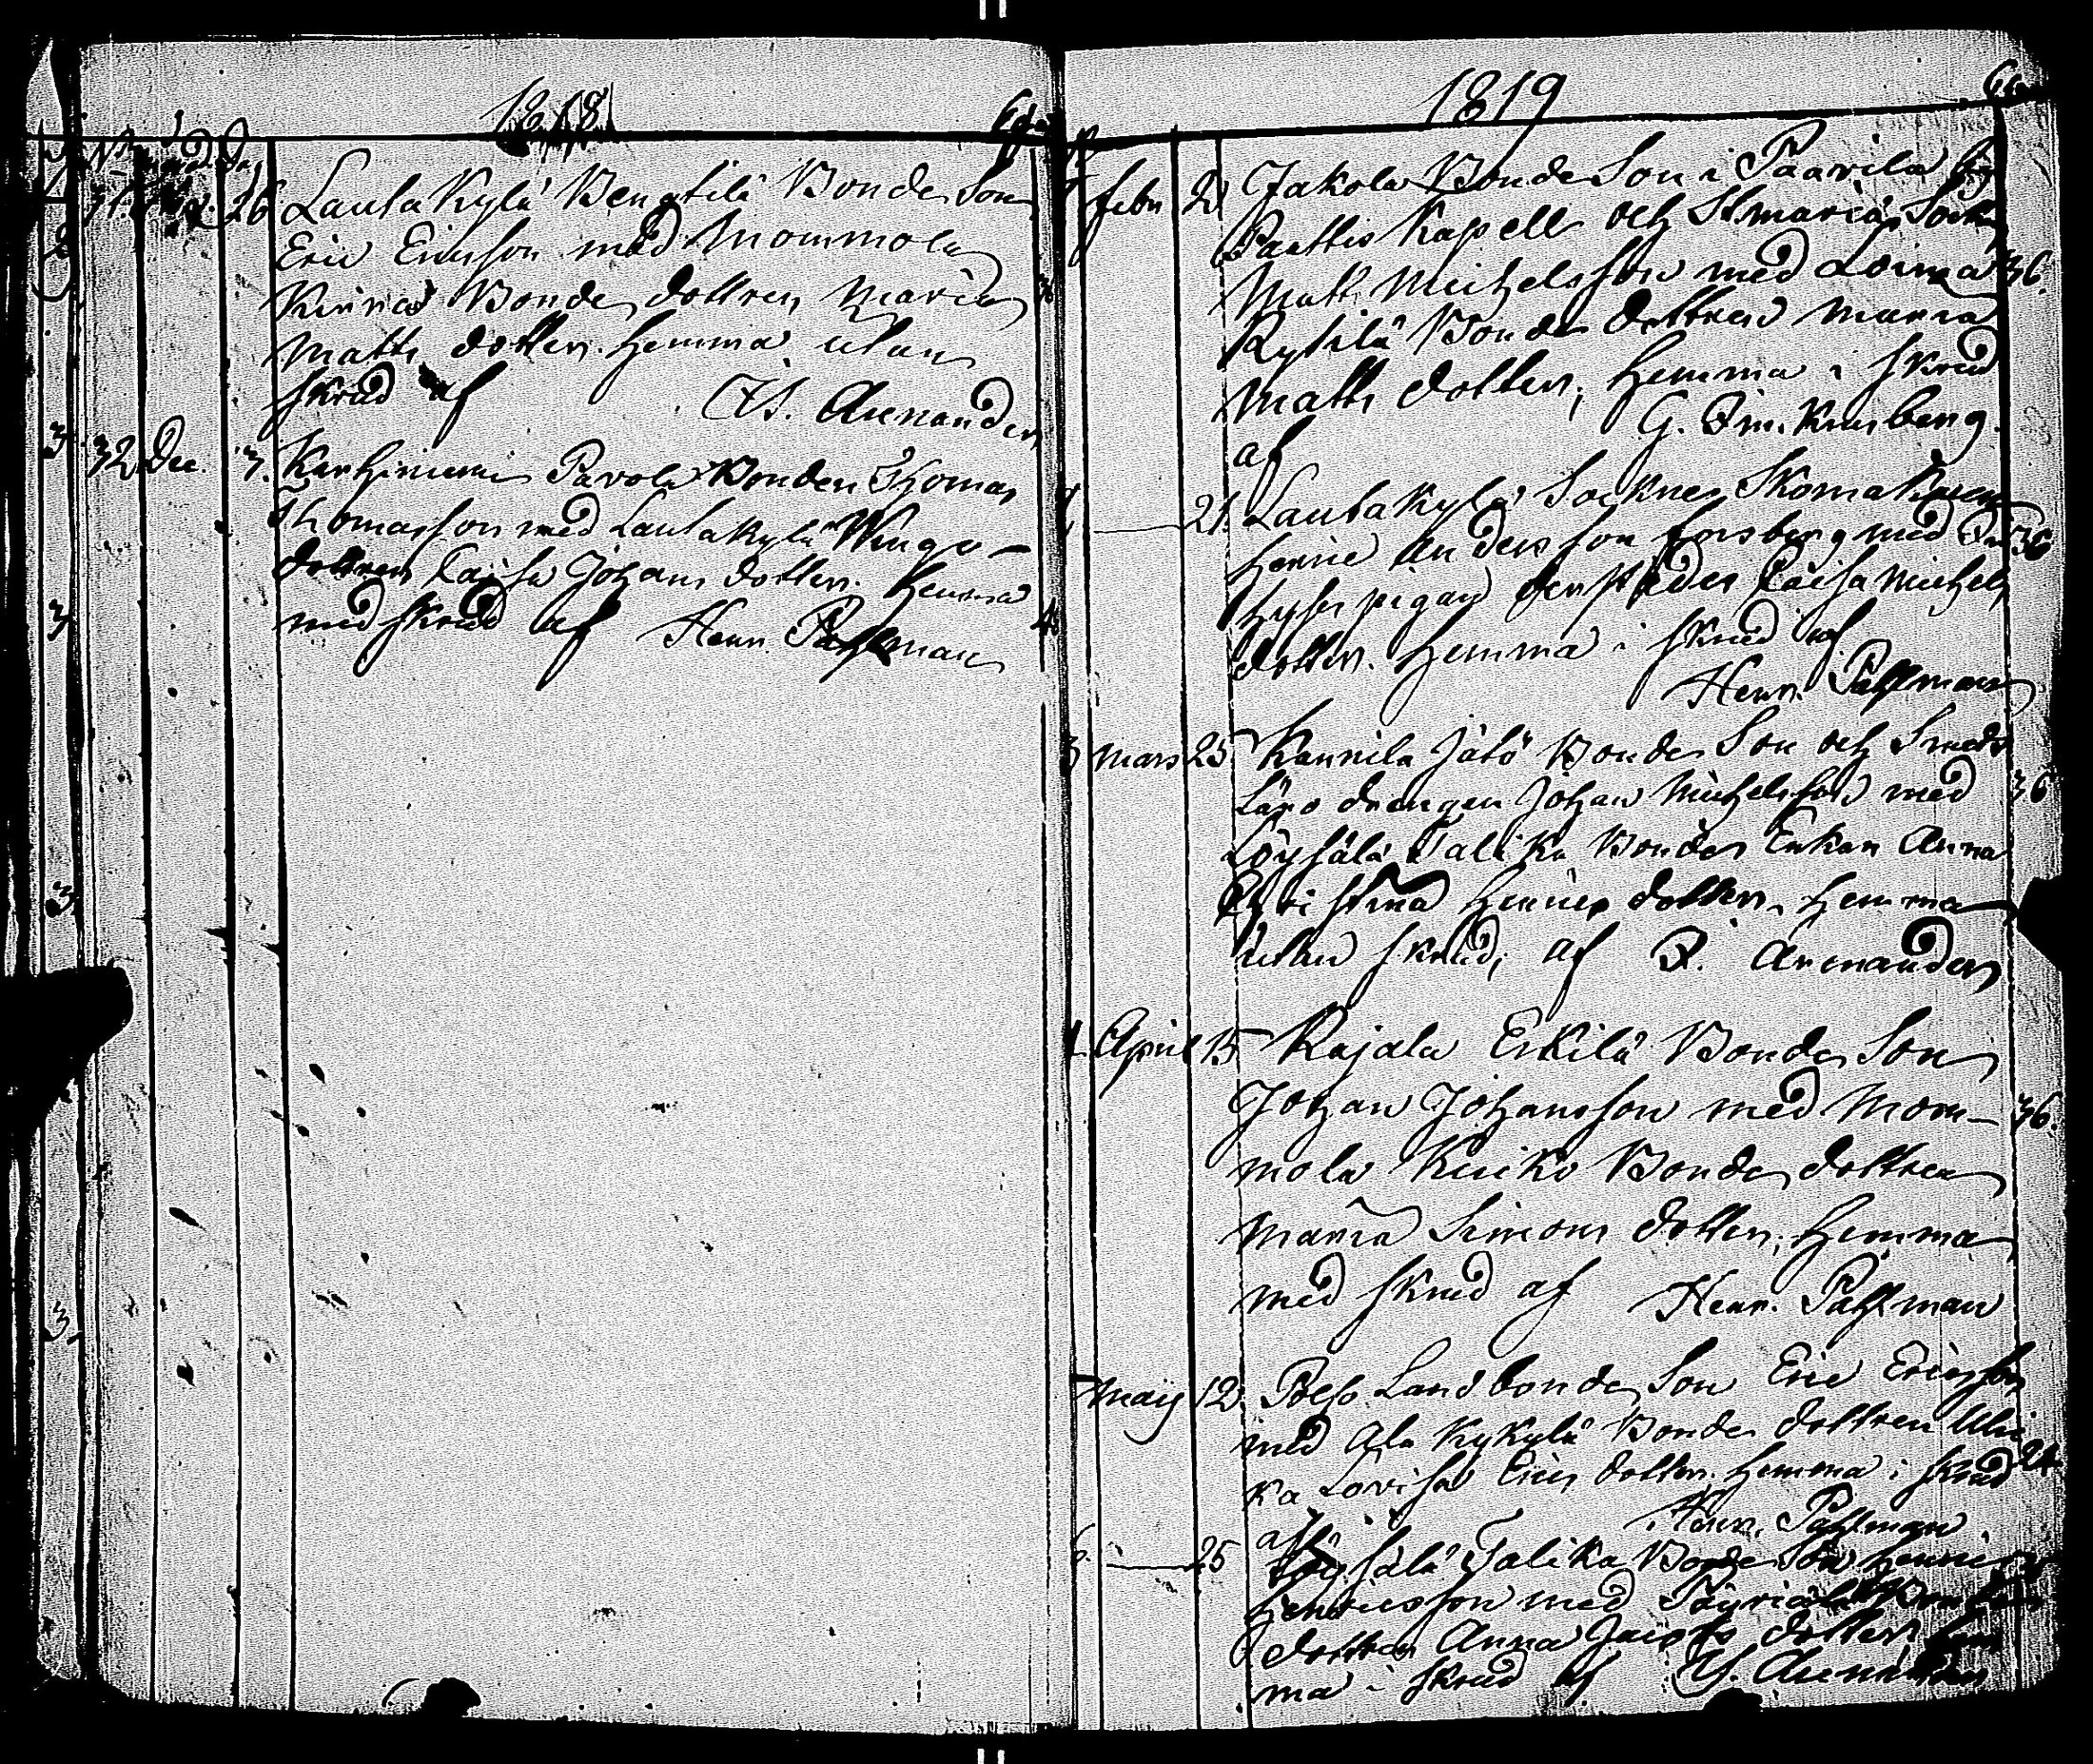 1818
26 Lautakylä Bengtilä Bonde Son
Eric Ericsson med Mommola
Bonde dottren Maria
Matts dotter. hemma utan
skrud af Arenander
32 Dec. 3. Karhiniemi Pavola Bonden Thomas
Thomasson med Lautakylä
dottren Caisa Johans dotter. hemma
med skrud af Henr. Pahlman
1819
Febr 2 Jakola Bonde Son i Paavila
Paattis Kapell och St Mariæ Sockn
Matts Michelsson med Loima 36.
Bonde dottren Maria
Matts dotter, hemma i skrud
af G.
21. Lautakylä Sockne Skomakaren
Henric Andersson Forsberg med 36
pigan dersstädes Caisa Michels
dotter. hemma i skrud af
Henr. Pahlman
3 Mars 25 Kannila Bonde Son och Smeds
Läro drengen Johan Michelsson med 36
Löysälä Talika Bonde Enkan Anna
Christina Henrics dotter, hemma
utan skrud, af Arenander
April 15 Rajala Erkilä Bonde Son
Johan Johansson med Mom- 36.
mola Bonde dottren
Maria Simons dotter, hemma
med skrud af Henr. Pahlman
May 12 Landbonde Son Eric Ericsson
med Ala Kykylä Bonde dottren Ulri
ka Lovisa Erics dotter. hemma i skrud 24
af Henr. Pahlman
6. 25 Löysälä Talika Bonde Son Henric
Henricsson med
dottren Anna Jacobs dotter hem
ma i skrud af